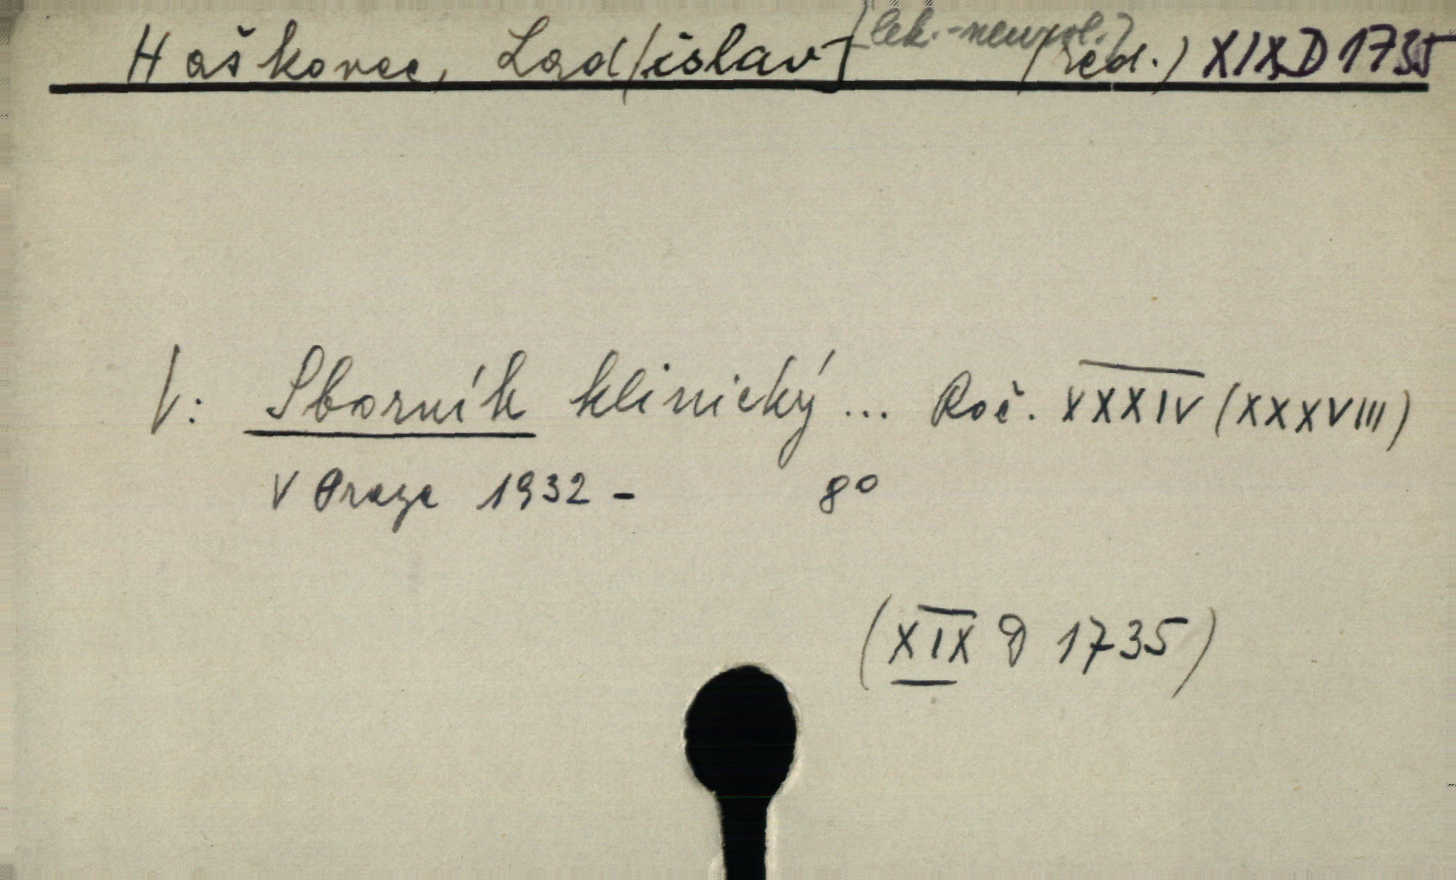 Haškovec, Lad/islav] [lek.-neurol.] (red.) XIX D 1735
V: Sborník klinický ... Roč. XXXIV (XXXVIII)
V Praze 1932 - 8°
(XIX D 1735)